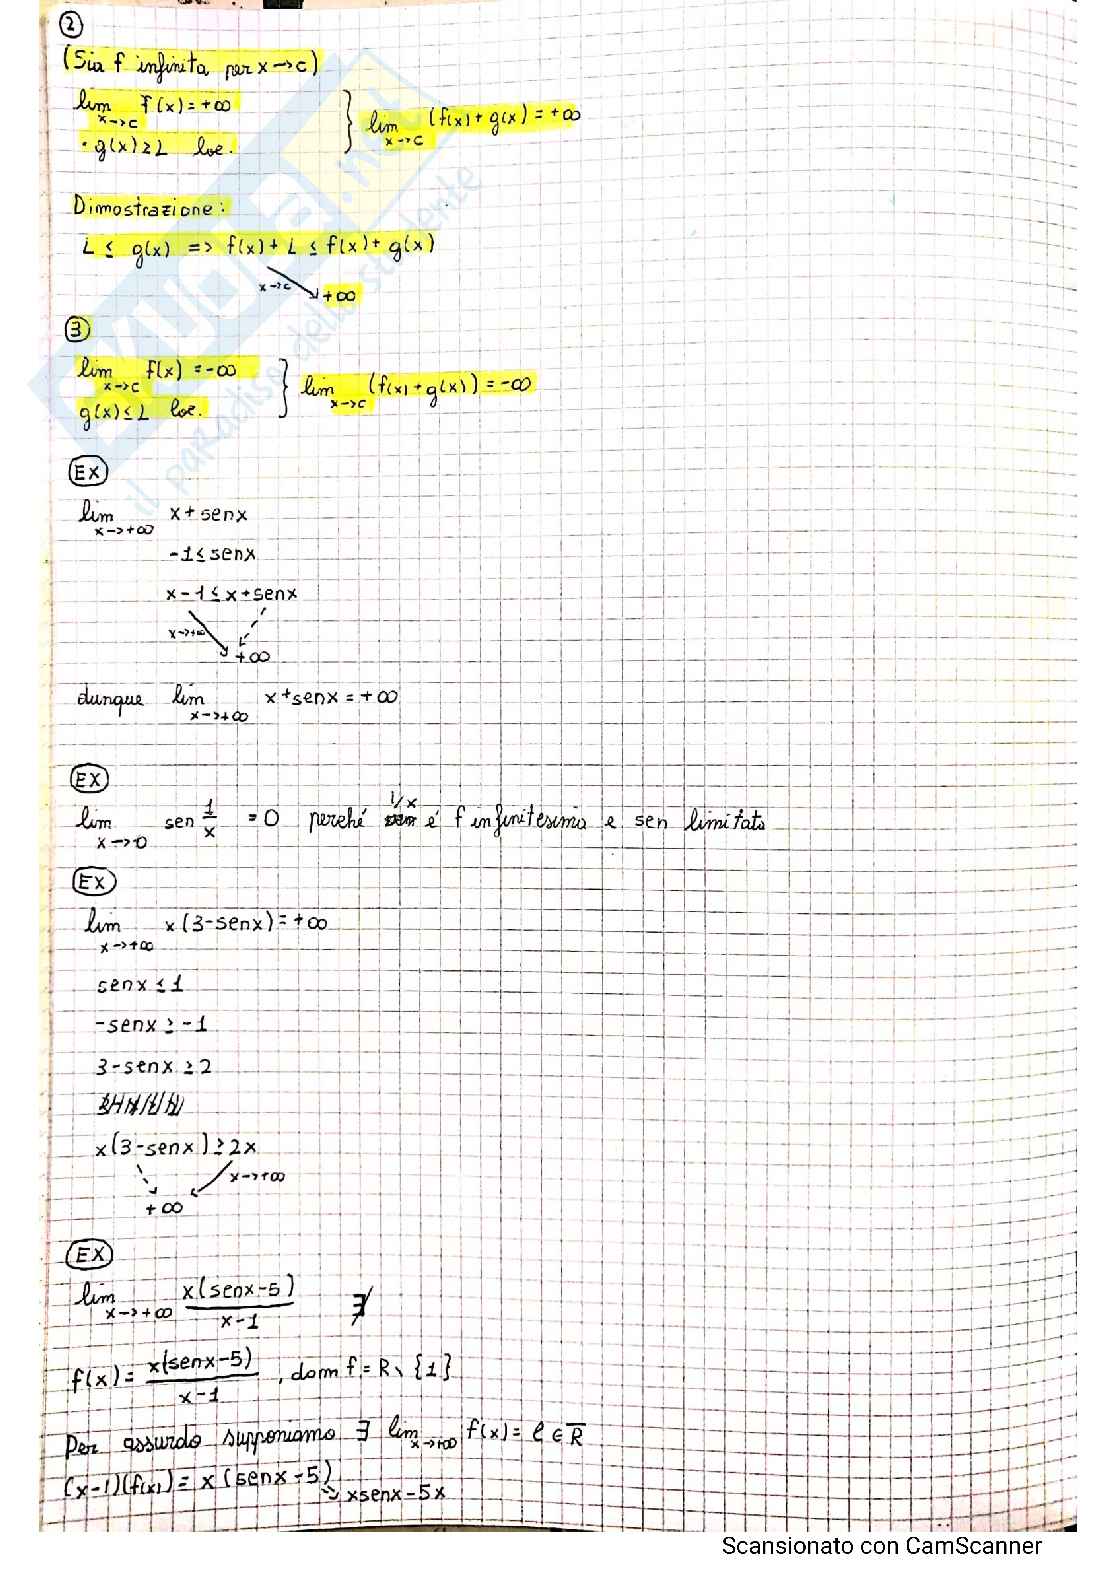 ②
(Sia f infinita per x→c)
lim x→c f(x) = +∞
• g(x) ≥ L loc. } lim x→c (f(x) + g(x)) = +∞
Dimostrazione:
L ≤ g(x) => f(x) + L ≤ f(x) + g(x)
x→c +∞
③
lim x→c f(x) = -∞
g(x) ≤ L loc. } lim x→c (f(x) + g(x)) = -∞
EX
lim x→+∞ x + senx
-1 ≤ senx
x - 1 ≤ x + senx
x→+∞
+∞
dunque lim x→+∞ x + senx = +∞
EX
lim x→0 sen 1/x = 0 perché 1/x é f infinitesima e sen limitata
EX
lim x→+∞ x(3-senx) = +∞
senx ≤ 1
-senx ≥ -1
3-senx ≥ 2
x(3-senx) ≥ 2x
x→+∞
+∞
EX
lim x→+∞ x(senx-5)/x-1 ∄
f(x) = x(senx-5)/x-1 , dom f = R \ {1}
Per assurdo supponiamo ∃ lim x→+∞ f(x) = ℓ ∈ R̅
(x-1)(f(x)) = x(senx-5)
xsenx-5x
SKUOLA.net
il paradiso dello studente
Scansionato con CamScanner